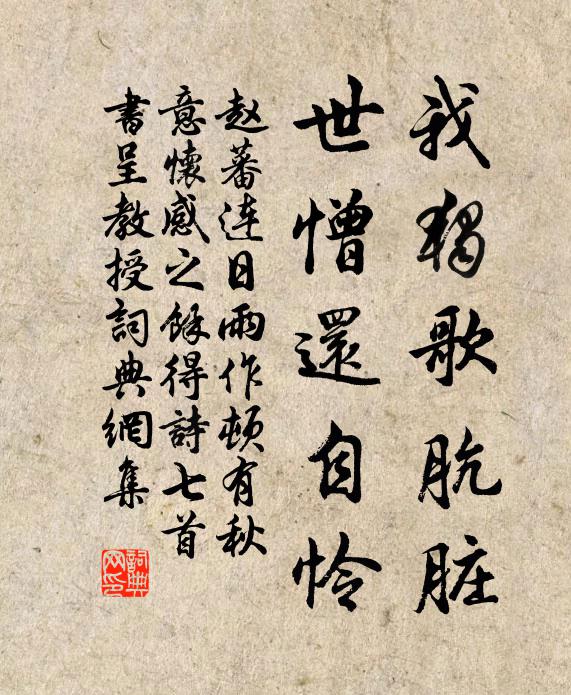 我独歌肮脏
世憎還自怜
赵蕃连日雨作頓有秋
意懷感之餘得詩七首
書呈教授詞典網集
詞典网印